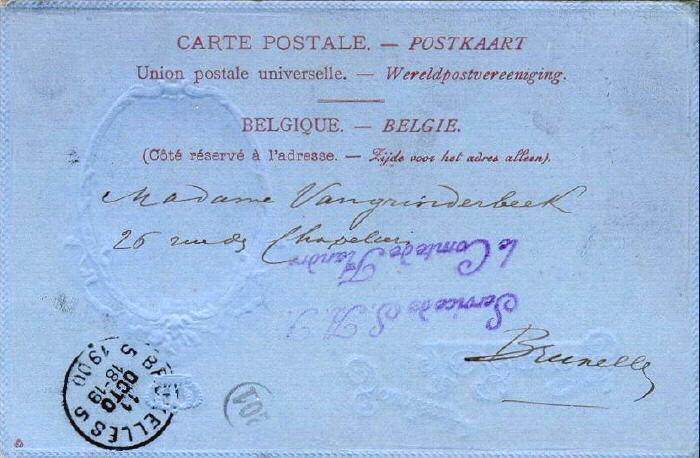 CARTE POSTALE. — POSTKAART
Union postale universelle. — Wereldpostvereeniging.
BELGIQUE. — BELGIE.
(Côté réservé à l'adresse. — Zijde voor het adres alleen).
Madame Vangrinderbeek
26 rue des Chapeliers
Service de S. A. R.
le Comte de Flandre
Bruxelles
BRUXELLES 5
11
OCTO
18-19
1900
5
201